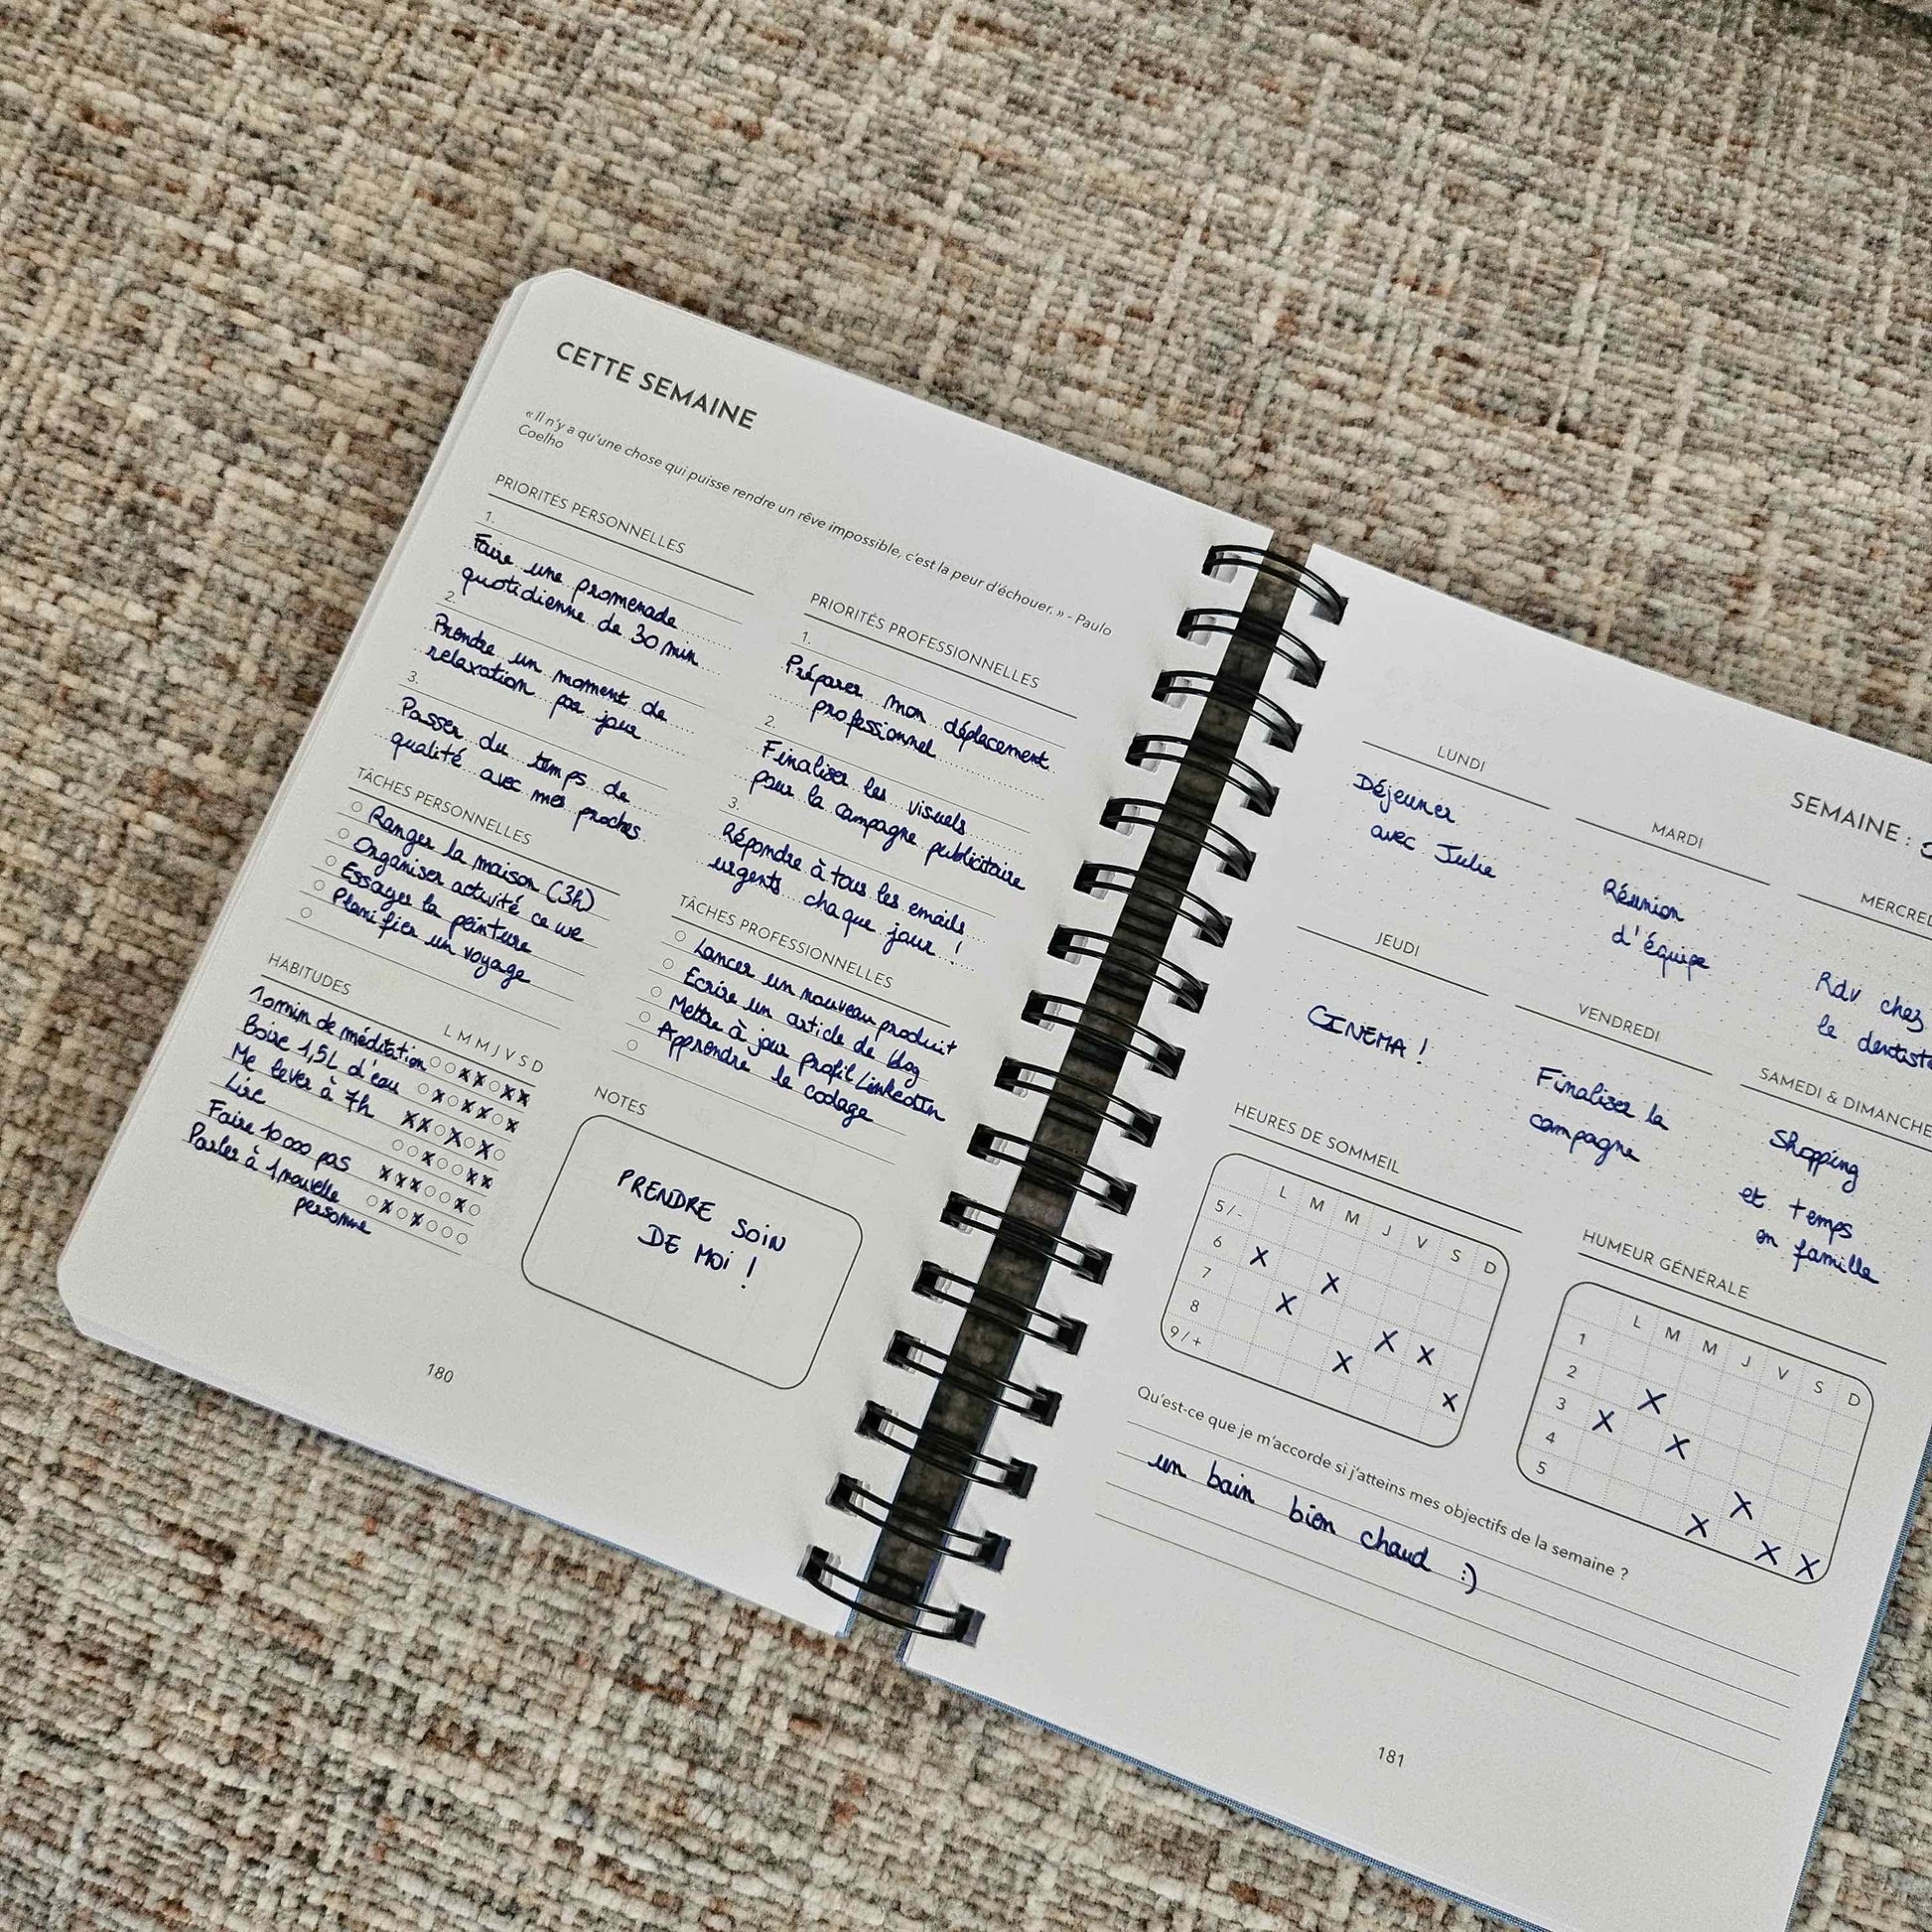 CETTE SEMAINE
« Il n'y a qu'une chose qui puisse rendre un rêve impossible, c'est la peur d'échouer. » - Paulo
Coelho
PRIORITÉS PERSONNELLES
1.
Faire une promenade
quotidienne de 30 min
2.
Prendre un moment de
relaxation par jour
3.
Passer du temps de
qualité avec mes proches
TÂCHES PERSONNELLES
Ranger la maison (3h)
Organiser activité ce we
Essayer la peinture
Planifier un voyage
HABITUDES
L M M J V S D
10min de méditation
Boire 1,5L d'eau
Me lever à 7h
Lire
Faire 10 000 pas
Parler à 1 nouvelle
personne
PRIORITÉS PROFESSIONNELLES
1.
Préparer mon déplacement
professionnel
2.
Finaliser les visuels
pour la campagne publicitaire
3.
Répondre à tous les emails
urgents chaque jour !
TÂCHES PROFESSIONNELLES
Lancer un nouveau produit
Ecrire un article de blog
Mettre à jour profil LinkedIn
Apprendre le codage
NOTES
PRENDRE SOIN
DE MOI !
180
SEMAINE :
LUNDI
Déjeuner
avec Julie
MARDI
Réunion
d'équipe
Rdv chez
le
JEUDI
CINEMA !
VENDREDI
Finaliser la
campagne
SAMEDI & DIMANCHE
Shopping
et temps
en famille
HEURES DE SOMMEIL
L M M J V S D
5/-
6 X
7
8
9/+
HUMEUR GÉNÉRALE
L M M J V S D
1
2
3
4
5
Qu'est-ce que je m'accorde si j'atteins mes objectifs de la semaine ?
un bain bien chaud :)
181